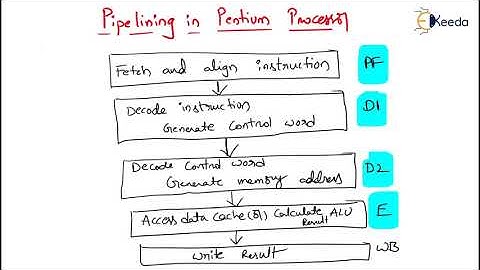 Pipelining in Pentium Processor
Ekeeda
Fetch and align instruction
PF
Decode instruction
Generate Control word
D1
Decode Control word
Generate memory address
D2
Access data cache (or) Calculate ALU
Result
E
Write Result
WB